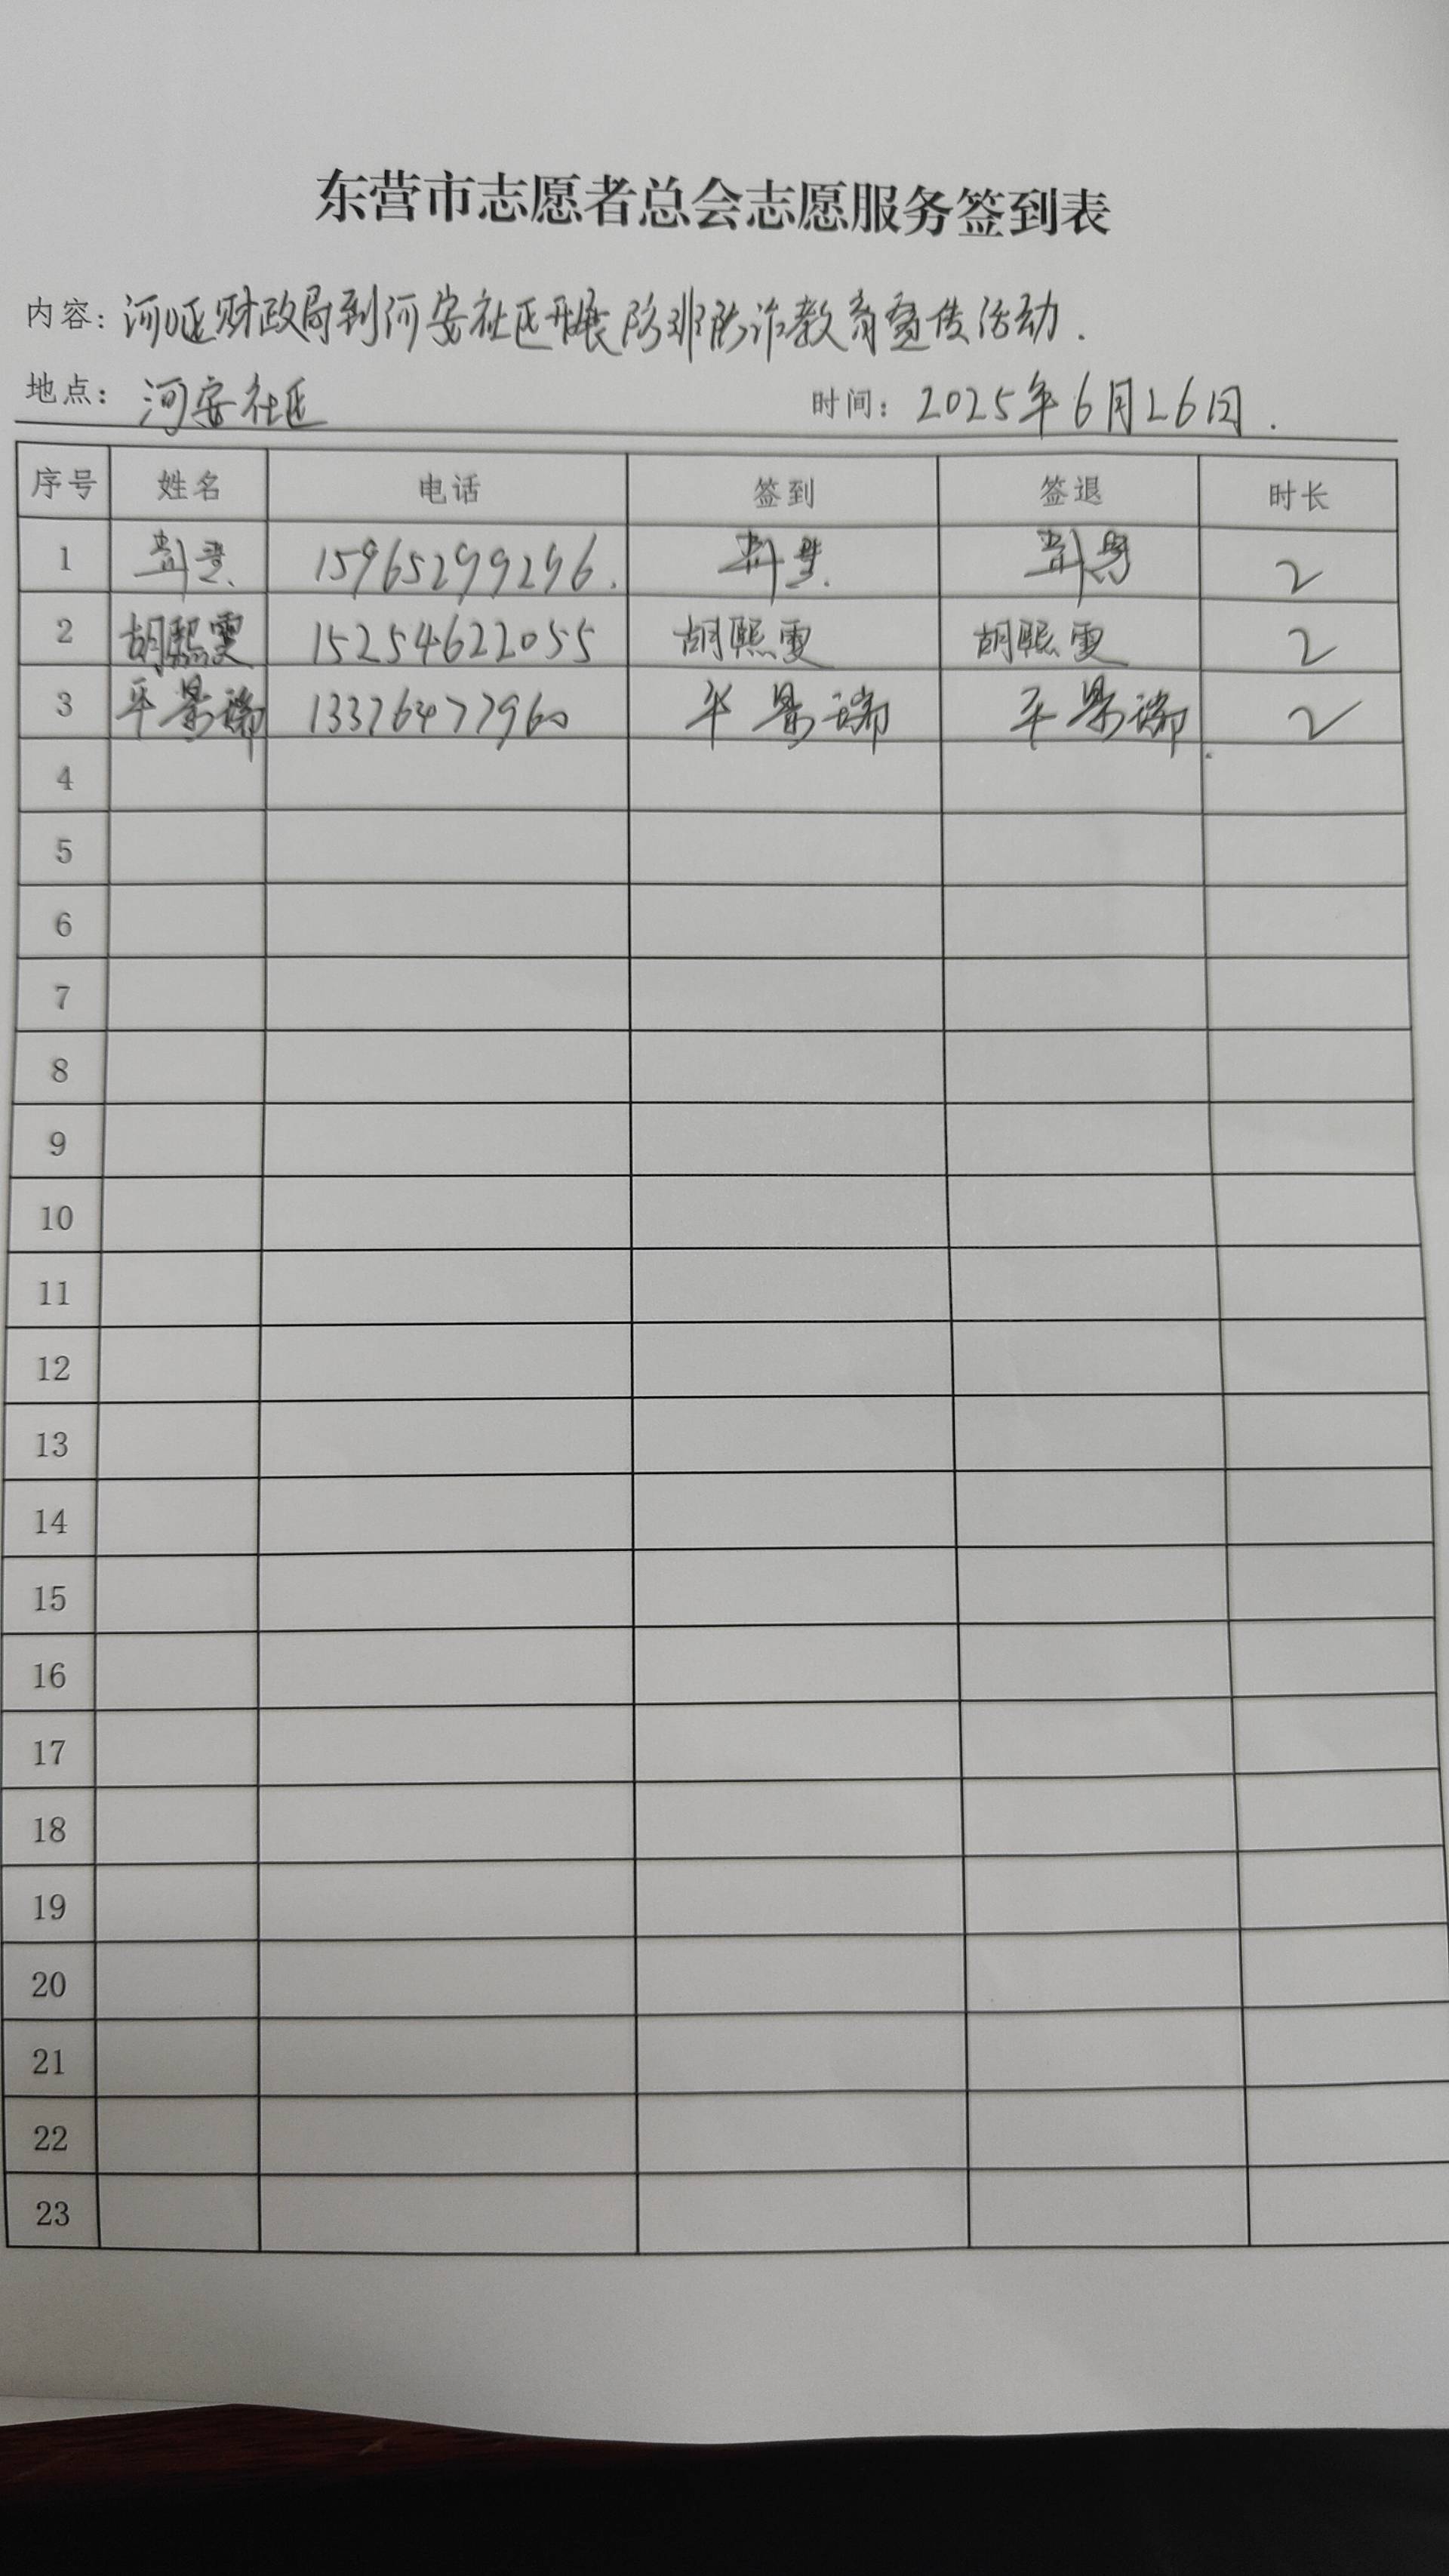 东营市志愿者总会志愿服务签到表
内容: 河口区财政局到河安社区开展防非防诈教育宣传活动.
地点: 河安社区 时间: 2025年6月26日.
序号 姓名 电话 签到 签退 时长
1 15965299296. 2
2 胡熙雯 15254622055 胡熙雯 胡熙雯 2
3 平景瑞 平景瑞 平景瑞 2
4
5
6
7
8
9
10
11
12
13
14
15
16
17
18
19
20
21
22
23